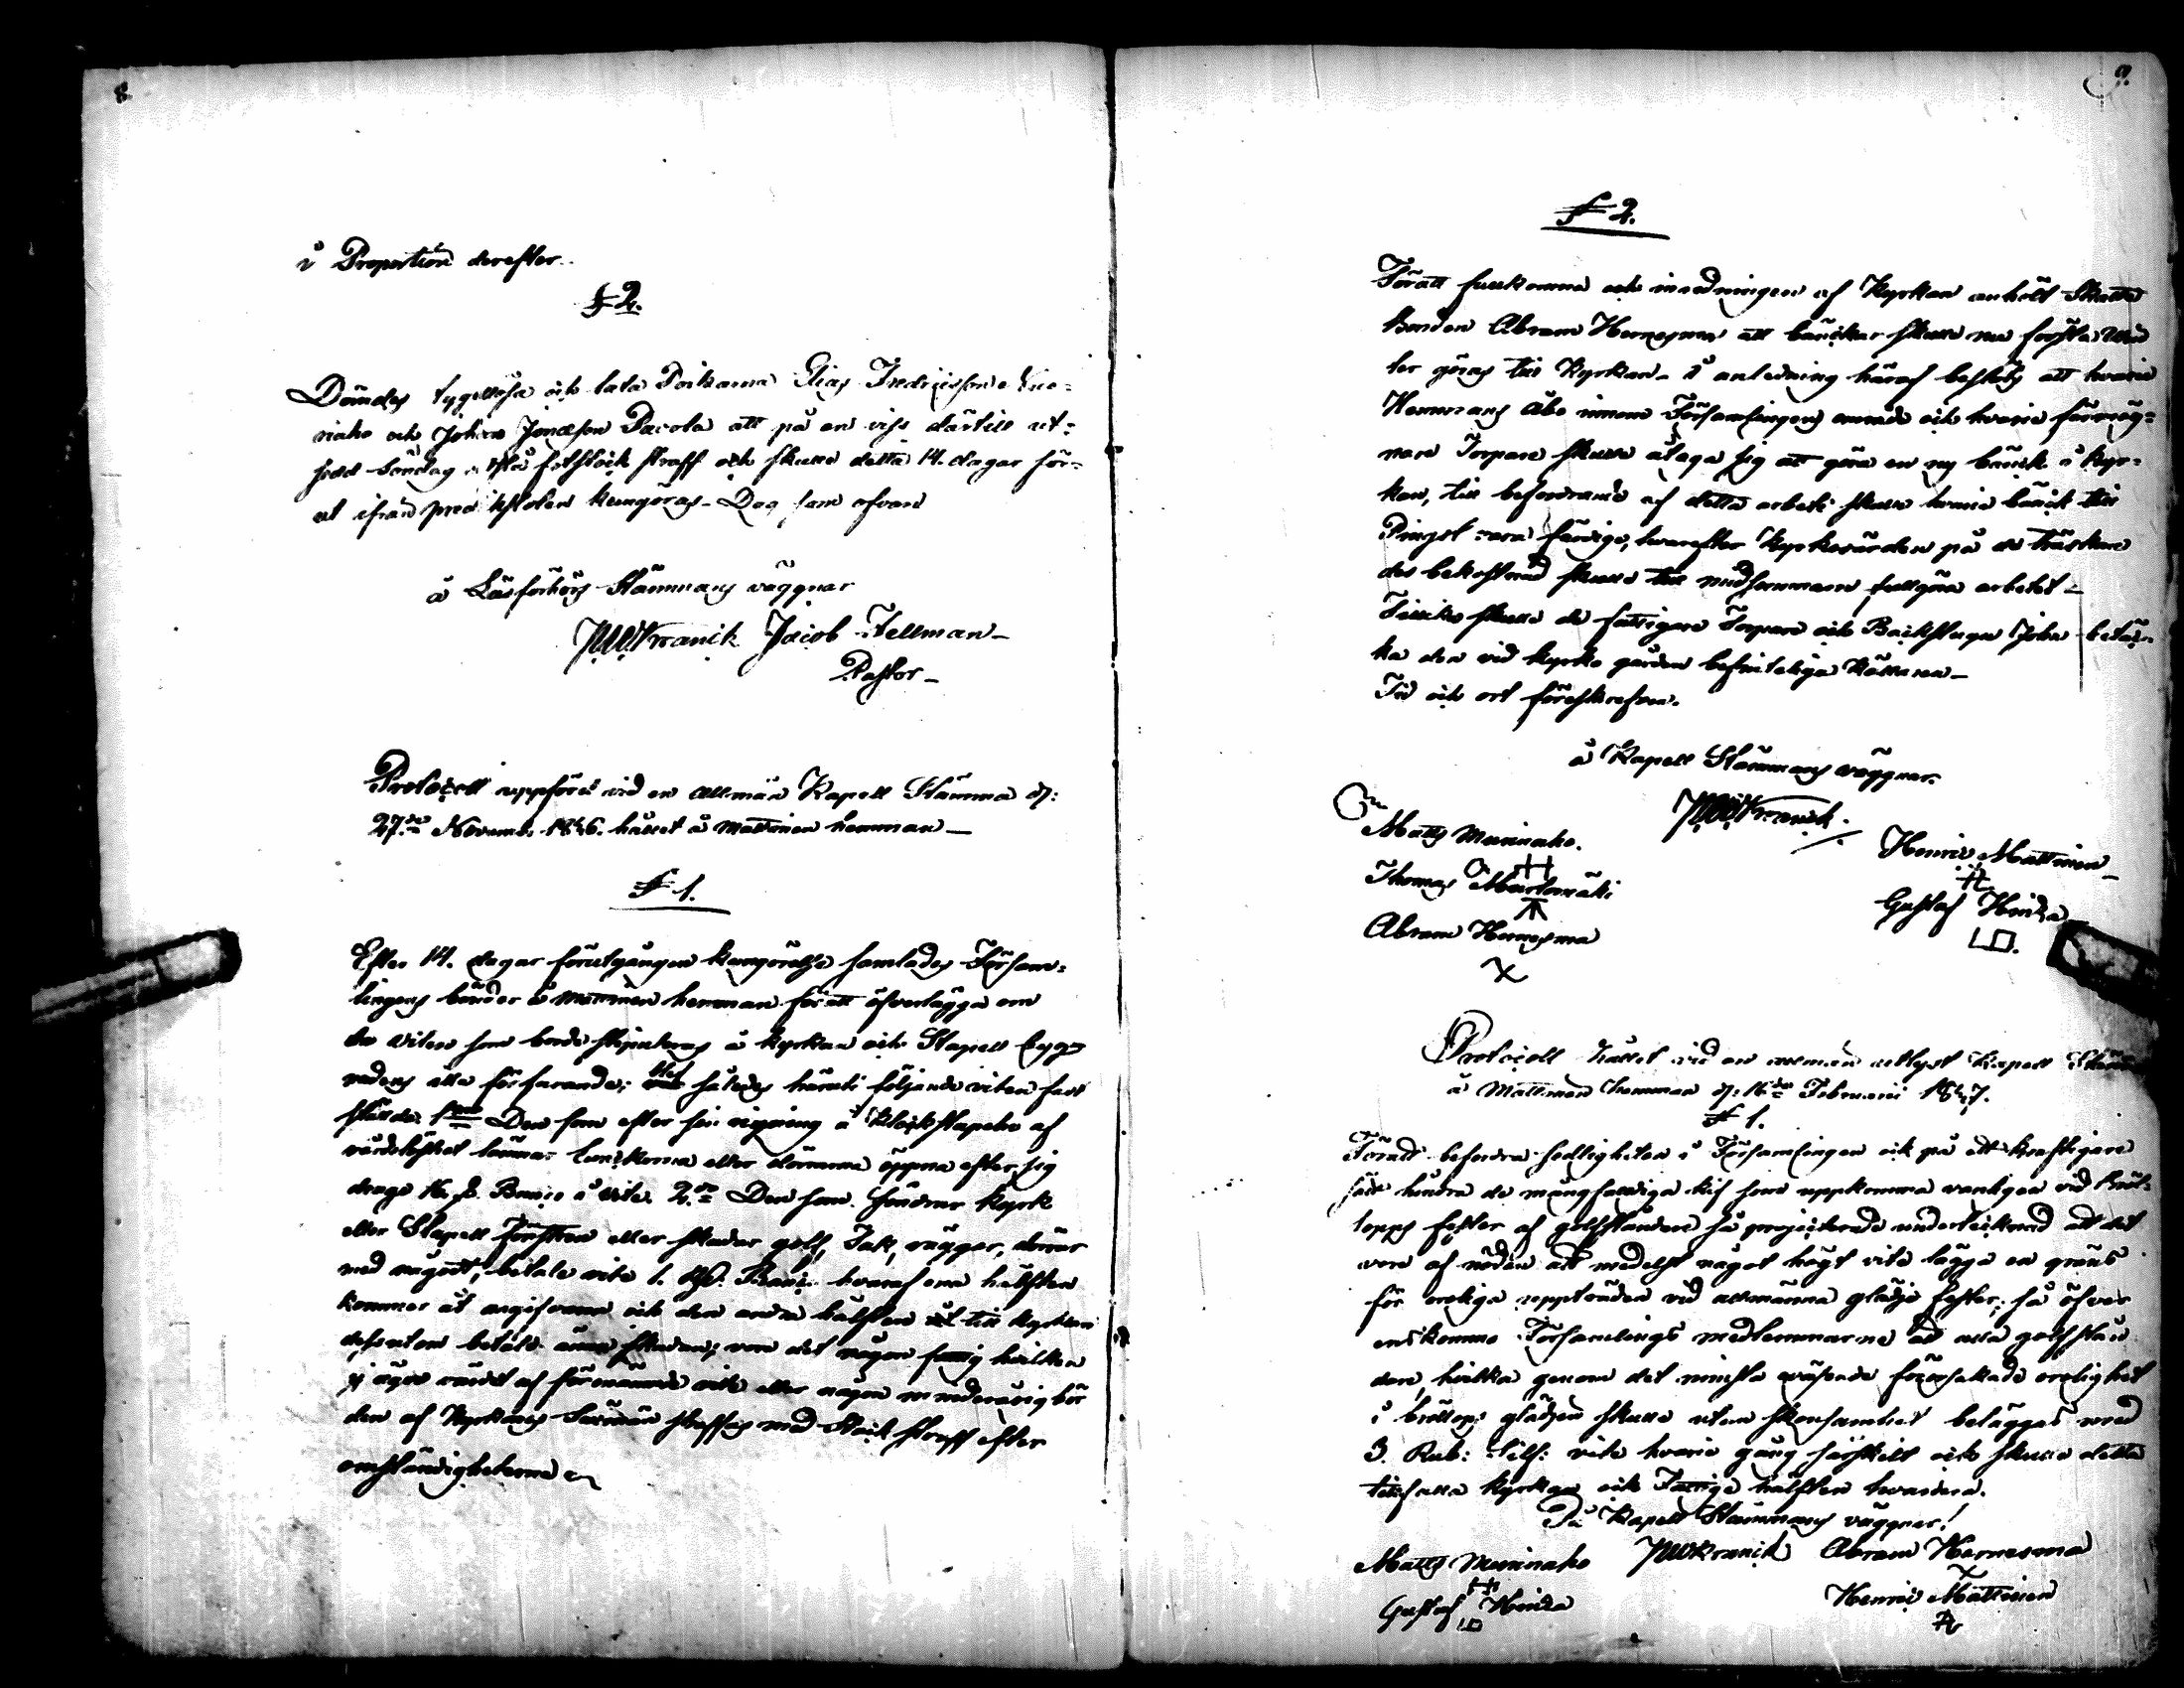 8.
i Proportion derefter.
§ 2.
Dömdes tygellösa och lata Poikarna Elias Fredricsson
niaho och Johan Jonasson Pavola att på en viss därtill ut=
sedd Söndag stå fotstock straff och skulle detta 14. dagar för=
ut ifrån predikstolen kungöras- Dag som ofvan
å Läsförhörs Stämmans vägnar
JWKranck Jacob Fellman-
Pastor-
Protocoll uppfördt vid en allmän Kapell Stämma d:
27de Novemb. 1846. hållet å Mattinen hemman-
§ 1.
Efter 14. dagar förutgången kungörelse samlades Försam=
lingens bönder å Mattinen hemman för att öfverlägga om
de viten som borde stipuleras å kyrkan och Stapell bygg
nadens illa förfarande; blef således häruti följande viten fast
stälde: 1mo Den som efter sin ringning i Klockstapeln af
vårdslöshet lämnar luckorna eller dörrarna öppna efter sig
drage 16 s. Banco i vite. 2do Den som söndrar kyrk
eller Stapell fönstren eller skadar golf, Tak, vägger, dörrar
med något, betale vite 1. Rd. Banco hvaraf ena hälften
kommer åt angifvaren och den andra hälften till kyrkan
dessutom betale skadan; vore det någon fattig hvilken
ej ägde råd af förenämnde vite eller någon minderårig bör
den af Kyrkans Sexmän straffas med Stock straff efter
omständigheterna
9.
§ 2.
Föratt fullkomna och inredningen af Kyrkan anhölt Skatte
bonden Abram Hernesma att bänckar skulle nu första Win
ter göras till Kyrkan- I anledning häraf beslöts att hvarie
Hemmans Åbo innom Församlingens område och hvarie förmög=
nare Torpare skulle åtaga sig att göra en ny bänck i kyr=
kan, till befordrande af detta arbete skulle hvarie bänck till
Pingst vara färdige, hvarefter Kyrkovärden på de träskan
des bekostnad skulle till midsommaren fullgöra arbetet-
skulle de fattigare Torpare och Backstugu hjon betäc-
ka den vid kyrko gården befinteliga
Tid och ort föreskrefven.
å Kapell Stämmans vägnar.
JWKranck.
Matts Muniaho.
Thomas
Abram Hernesma
Henric Mattinen-
Gustaf
Protocoll hållet vid en allmän utlyst Kapell
å Mattinen hemman d: 16de Februarii 1847.
§ 1.
Föratt befordra sedligheten i Församlingen och på ett kraftigare
sätt hindra de mångfaldiga kif som uppkomma vanligen vid bröl=
lopps fester af golfståndare så projecterade undertecknad att det
vore af nöden att medelst något högt vite lägga en gräns
för oroliga uppträden vid allmänna glädje fester; så öfver
enskommo Församlings medlemmarne att alla golfstån
dare, hvilka genom det minsta wäsende förorsakade orolighet
i bröllops glädjen skulle utan skonsamhet beläggas med
3. Rub: Silf: vite hvarie gång särskilt och skulle detta
tillfalla Kyrkan och Fattige hälften hvardera.
På Kapell Stämmans vägnar!
Matts Muniaho JWKranck Abram Hernesma
Gustaf
Henric Mattinen